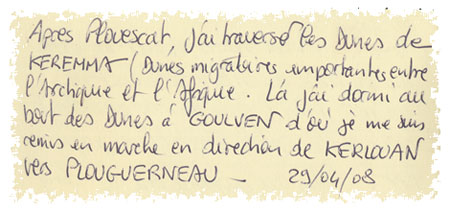 Après Plouescat, j'ai traversé les Dunes de
KEREMMA (Dunes migratoires importantes entre
l'Arctique et l'Afrique. Là j'ai dormi au
bout des Dunes à GOULVEN d'où je me suis
remis en marche en direction de KERLOUAN
vers PLOUGUERNEAU - 29/04/08